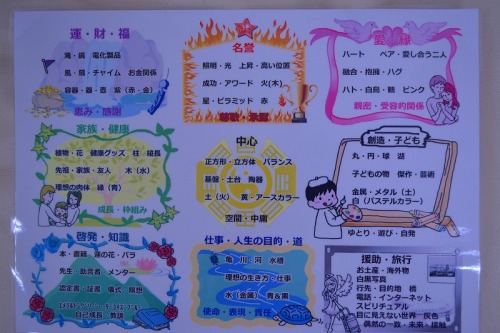 運・財・福
滝・鏡 電化製品
風・扇・チャイム お金関係
容器・器・壺 紫(赤・金)
恵み・感謝
名誉
照明・光 上昇・高い位置
成功・アワード 火(木)
星・ピラミッド 赤
尊敬・承認
愛・縁
ハート ペア・愛し合う二人
融合・抱擁・ハグ
ハト・白鳥・鶴 ピンク
親密・受容的関係
家族・健康
植物・花 健康グッズ 柱 縦長
先祖・家族・友人 木(水)
理想の肉体 緑(青)
成長・枠組み
中心
正方形・立方体 バランス
基盤・土台 陶器
土(火) 黄・アースカラー
空間・中庸
創造・子ども
丸・円・球 湖
子どもの物 傑作・芸術
金属・メタル(土)
白(パステルカラー)
ゆとり・遊び・自発
啓発・知識
本・書籍 蓮の花・バラ
先生 助言者 メンター
認定書・証書 儀式 瞑想
自己成長・教訓
仕事・人生の目的・道
亀 川 河 水槽
理想の生き方・仕事
水(金属) 黄&黒
使命・表現・責任
援助・旅行
お土産・海外物
白黒写真
行先・目的地 橋
電話・インターネット
スピリチュアル
目に見えない世界 灰色
偶然の一致・未来・接触